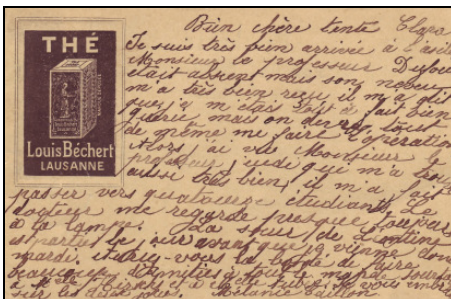 THÉ
Louis Béchert
LAUSANNE
Bien chère tente Clara
Je suis très bien arrivée à l'asile
Monsieur le professeur Dufour
était absent mais son neveu
m'a très bien reçu il m'a dit
que je m'étais tout à fait bien
guérie mais on devra tout
de même me faire l'opération
Alors j'ai vu Monsieur le
professeur jeudi qui m'a trouvé
aussi très bien, il m'a fait
passer vers quatorze étudiants. Le
docteur me regarde presque toujours
à la lampe. La sœur de
est partie le jour avant que je vienne
mardi. vous la bonté de faire
beaucoup d'amitiés à tous le
à
sur les deux joues. Mélanie